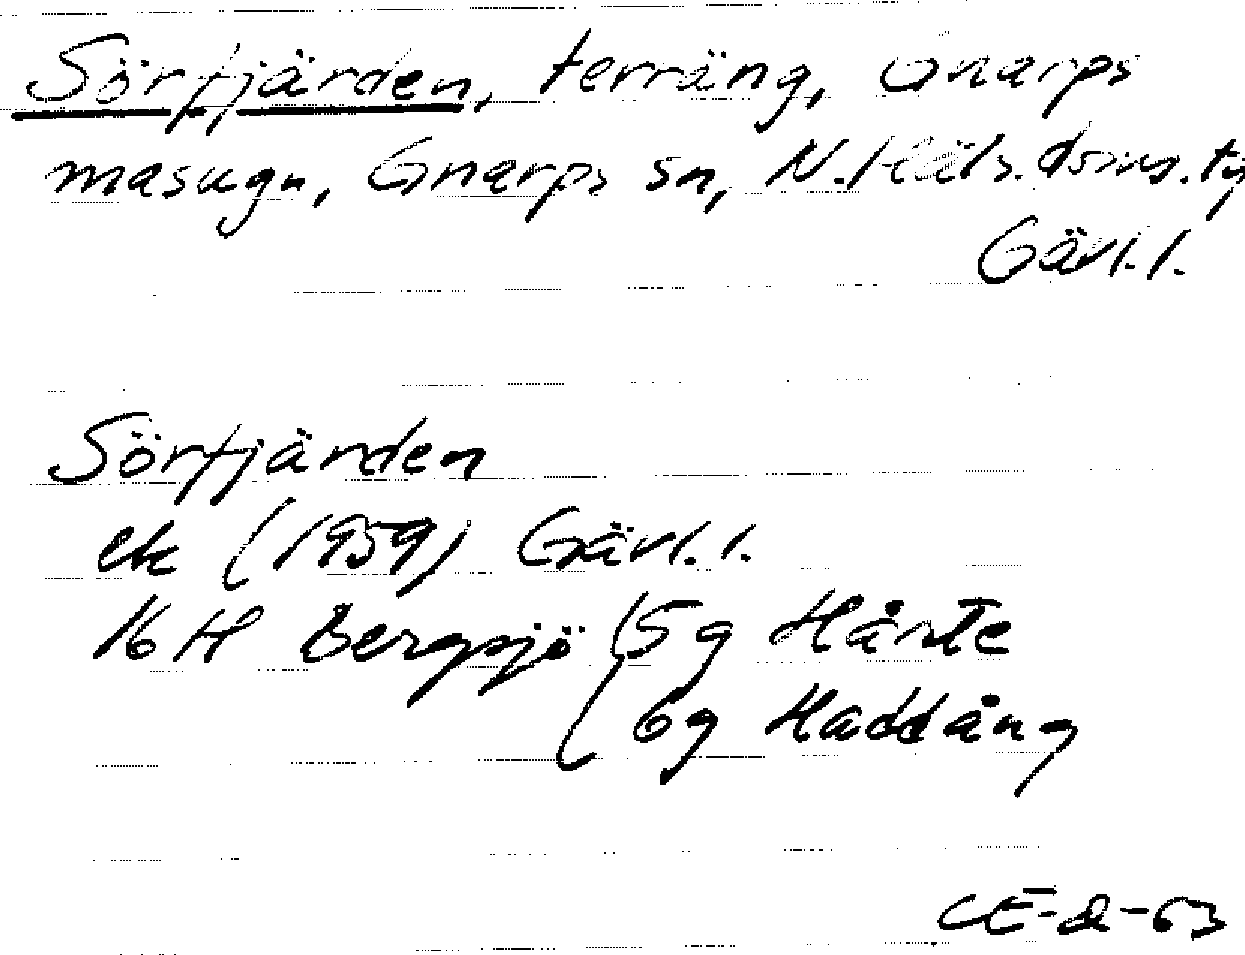 Sörfjärden, terräng, Gnarps
masugn, Gnarps sn, N. Häls. doms. ty
Gävl. l.
Sörfjärden
ek (1959) Gävl. l.
16 H Bergsjö (5 g Hårte
6g Haddäng
CE-D-63